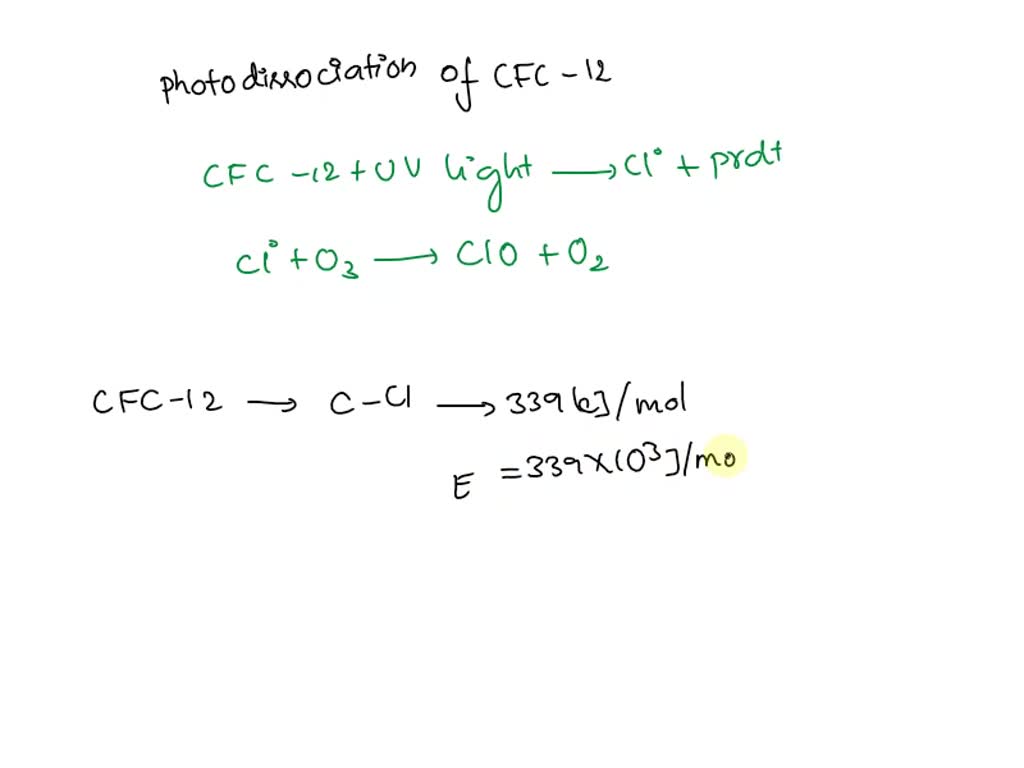 photodissociation of CFC-12
CFC-12 + UV light ⟶ Cl° + prdt
Cl° + O₃ ⟶ ClO + O₂
CFC-12 ⟶ C-Cl ⟶ 339 kJ/mol
E = 339×10³ J/mo